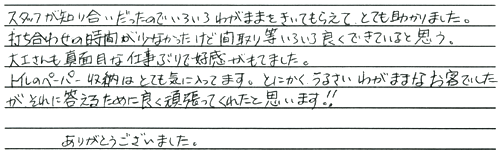 スタッフが知り合いだったのでいろいろわがままをきいてもらえて、とても助かりました。
打ち合わせの時間が少なかったけど間取り等いろいろ良くできていると思う。
大工さんも真面目な仕事ぶりで好感がもてました。
トイレのペーパー収納はとても気に入ってます。とにかくうるさいわがままなお客でした
がそれに答えるために良く頑張ってくれたと思います!!
ありがとうございました。